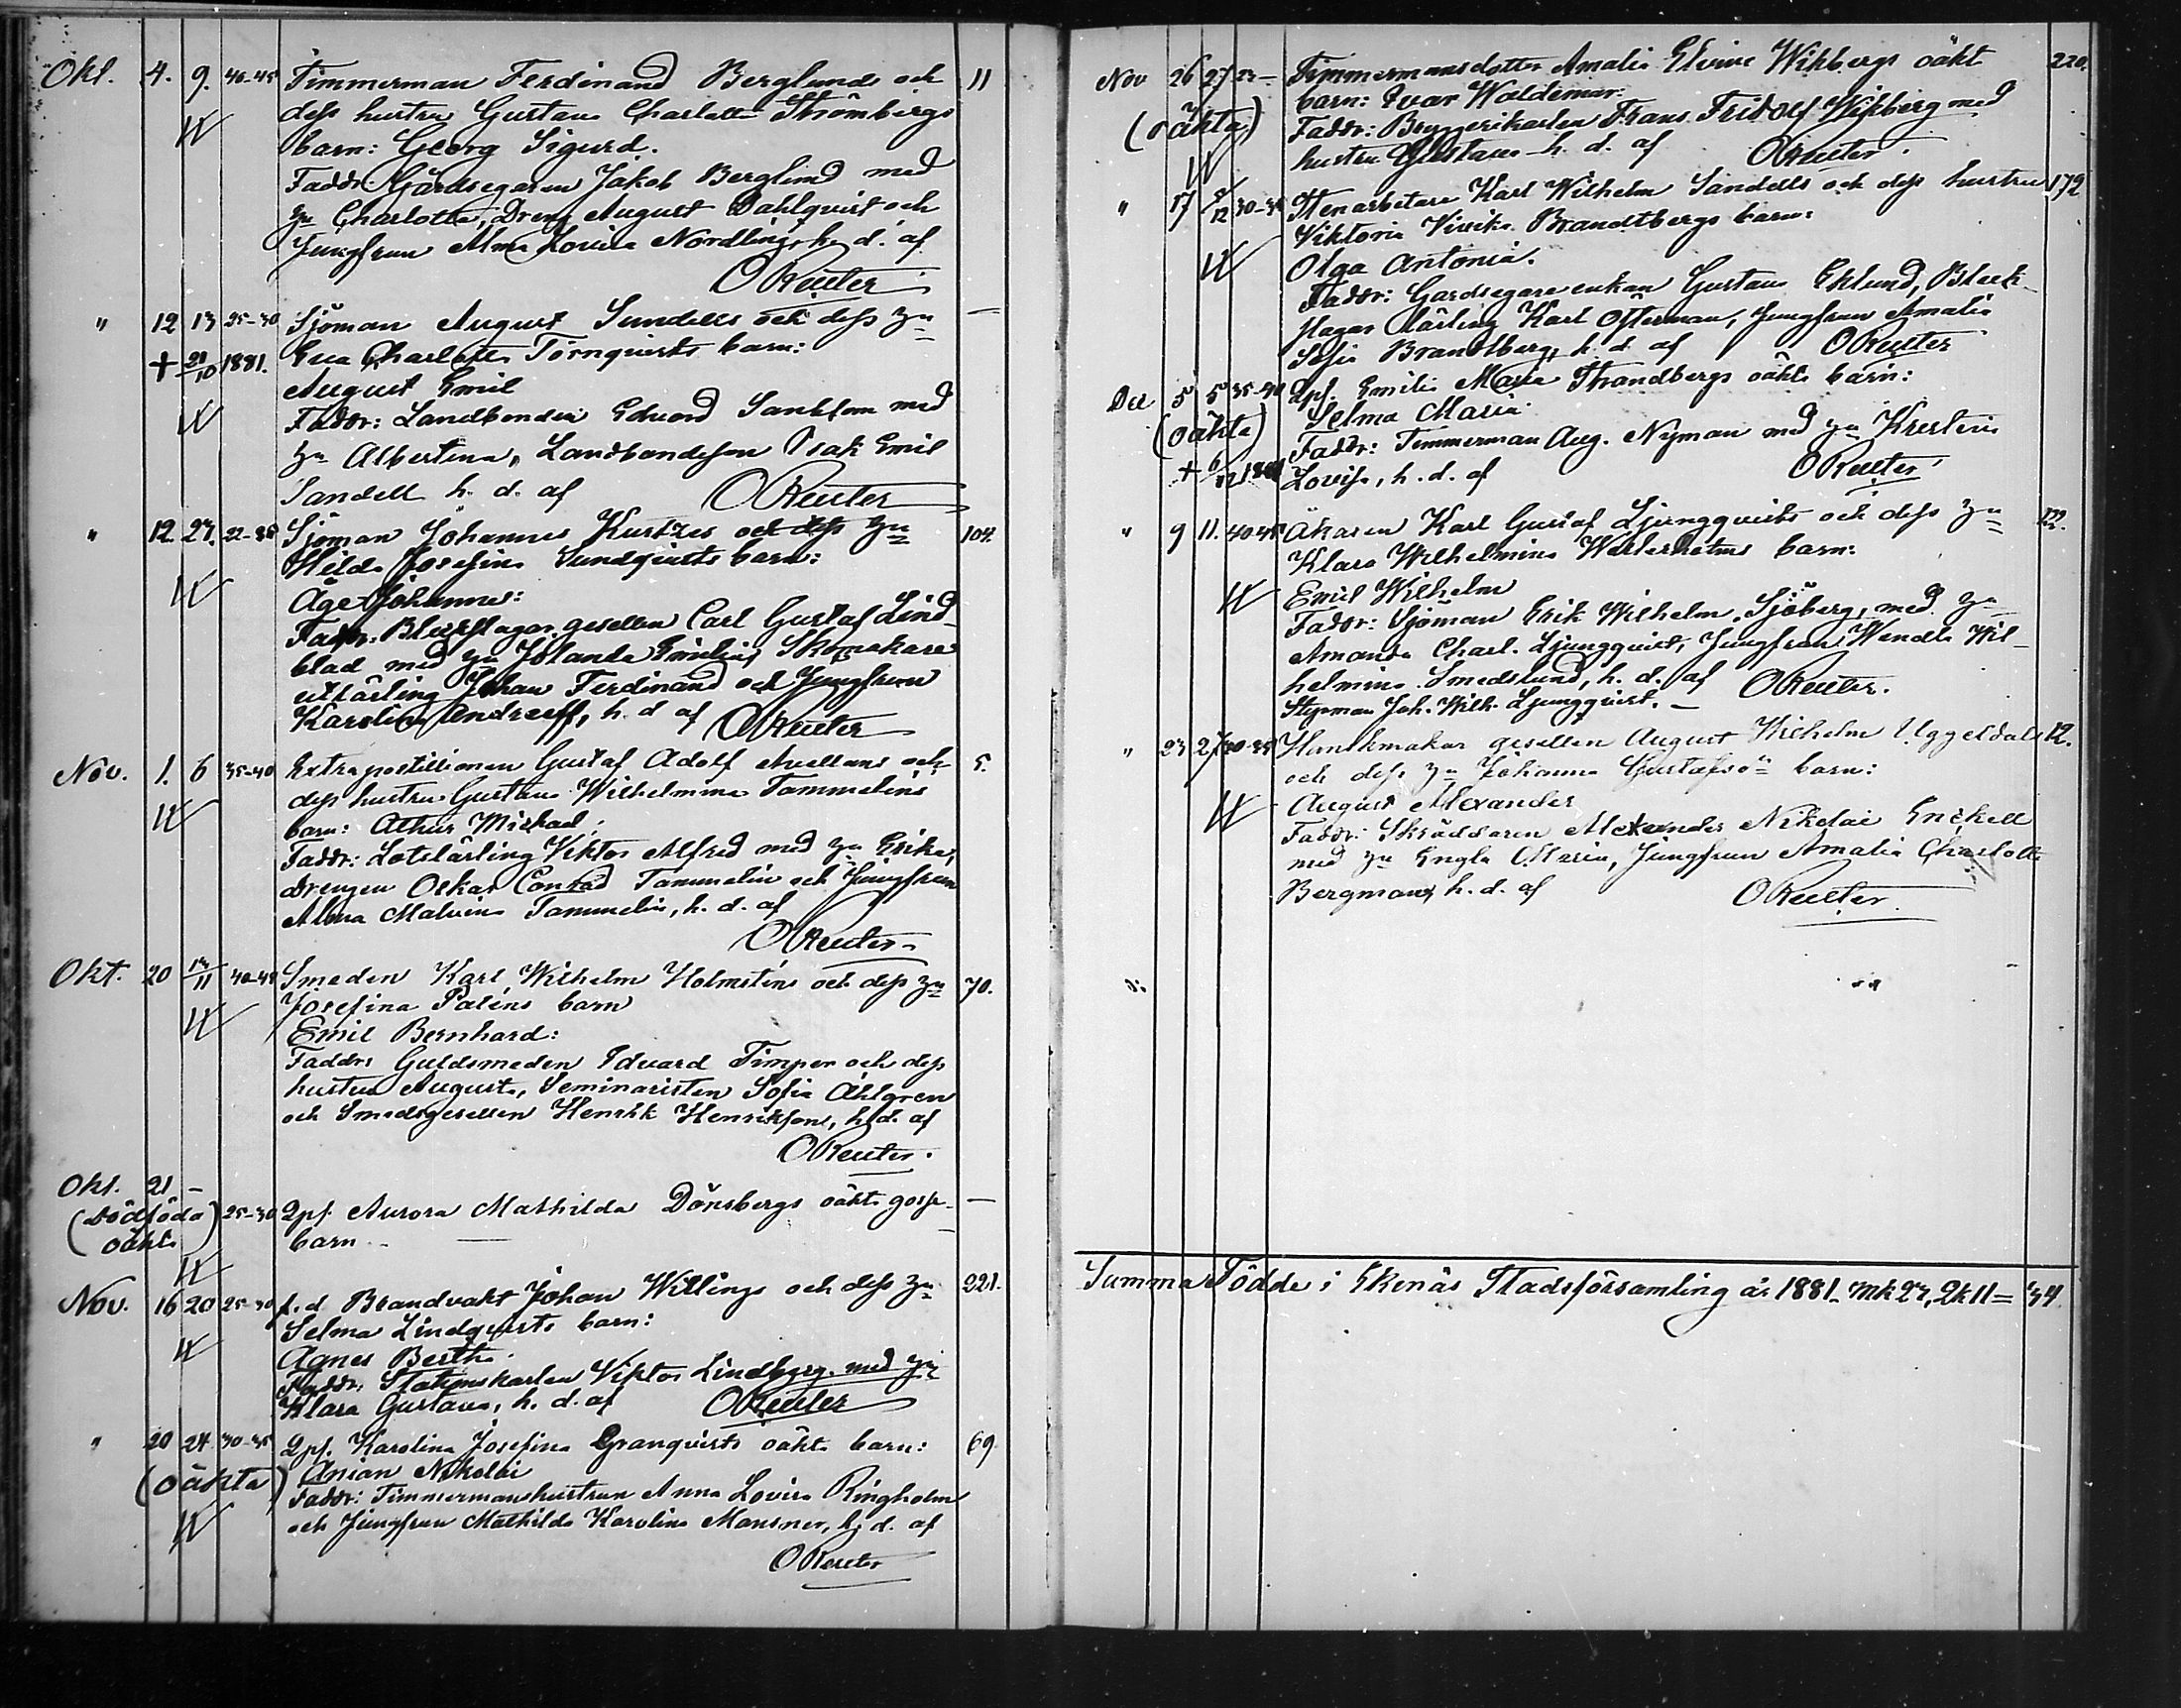 Okt. 4. 9. 40-45 Timmerman Ferdinand Berglunds och 11
dess hustru Gustava Charlotta Strömbergs
barn: Georg Sigurd.
Faddr: Gårdsegaren Jakob Berglund med
hu Charlotta, Dreng August Dahlqvist och
Jungfrun Alma Lovisa Nordling, h. d. af
O Reuter
" 12 13 25-30 Sjöman August Sundells och dess hu —
+ 21/10 1881. Eva Charlotta Törnqvists barn:
August Emil
Faddr: Landbonden Edvard Sanblom med
hu Albertina, Landbondeson Isak Emil
Sandell h. d. af O Reuter
" 12 27. Sjöman Johannes Kurtzes och dess hu 104.
Hilda Josefina Sundqvists barn:
Åge Johannes:
Faddr: Bleckslagar gesellen Carl Gustaf Lind-
blad med hu Jolanda Emilia, Skomakare
utlärling Johan Ferdinand och Jungfrun
Karolina Andreeff, h. d af O Reuter
Nov. 1. 6 35-40 Extra postillionen Gustaf Adolf Avellans och 5.
dess hustru Gustava Wilhelmina Tammelins
barn: Athur Mickael:
Faddr: Lotslärling Viktor Alfred med hu Erika,
drengen Oskar Conrad Tammelin och Jungfrun
Alma Malvina Tammelin, h. d. af
O Reuter.
Okt. 20 13/11 40-45 Smeden Karl Wilhelm Holmsténs och dess hu 70.
Josefina Paléns barn
Emil Bernhard:
Faddr: Guldsmeden Edvard Timper och dess
hustru Augusta, Seminaristen Sofia Åhlgren
och Smedsgesellen Henrik Henriksson, h. d. af
O Reuter.
Okt. 21 –
(dödföda) 25-30 Qpf. Aurora Mathilda Dönsbergs oäkta gosse- —
oäkta barn
Nov. 16 20 25-30 f. d Brandvakt Johan Willings och dess hu 221.
Selma Lindqvists barn:
Agnes Bertha.
Faddr: Stationskarlen Viktor Lindberg med hu
Klara Gustava, h. d. af O Reuter
" 20 24. 30-35 Qpf. Karolina Josefina Granqvists oäkta barn: 69.
(oäkta) Anian Nikolai
Faddr: Timmermanshustrun Anna Lovisa Ringholm
och Jungfrun Mathilda Karolina Mansner, h. d. af
O Reuter
Nov 26 27 23 – Timmermansdotter Amalia Elvira Wikbergs oäkt 220.
barn: Ivar Waldemar:
(oäkta) Faddr: Bryggerikarlen Frans Fridolf Wikberg med
hustru Gustava h. d. af O Reuter.
" 17 4/12 30-35 Stenarbetare Karl Wilhelm Sandells och dess hustru 172
Viktoria Vivika Brandtbergs barn:
Olga Antonia.
Faddr: Gardsegare enkan Gustava Eklund, Bleck-
slagar lärling Karl Österman, Jungfrun Amalia
Sofia Brandtberg, h. d. af O Reuter
Dec 5 5 35-40 Qpf. Emilia Maria Strandbergs oäkta barn:
(oäkta) Selma Maria
Faddr: Timmerman Aug. Nyman med hu Kristina
+ 6/12 1881 Lovisa, h. d. af O Reuter
" 9 11. 40-45 Åkaren Karl Gustaf Ljungqvists och dess hu 122.
Klara Wilhelmina Westerholms barn:
Emil Wilhelm
Faddr: Sjöman Erik Wilhelm Sjöberg, med hu
Amanda Charl. Ljungqvist, Jungfrun Wendla Wil-
helmina Smedslund, h. d. af O Reuter.
Styrman Joh. Wilh. Ljungqvist. –
" 23 27 30-35 Handskmakar gesellen August Wilhelm Uggeldals 12.
och dess hu Johanna Gustafson barn:
August Alexander
Faddr: Skräddaren Alexander Nikolai Enckell
med hu Engla Maria, Jungfrun Amalia Charlotta
Bergman, h. d. af O Reuter
Summa Födde i Ekenäs Stadsförsamling år 1881. Mk 23, Qk 11 = 34.